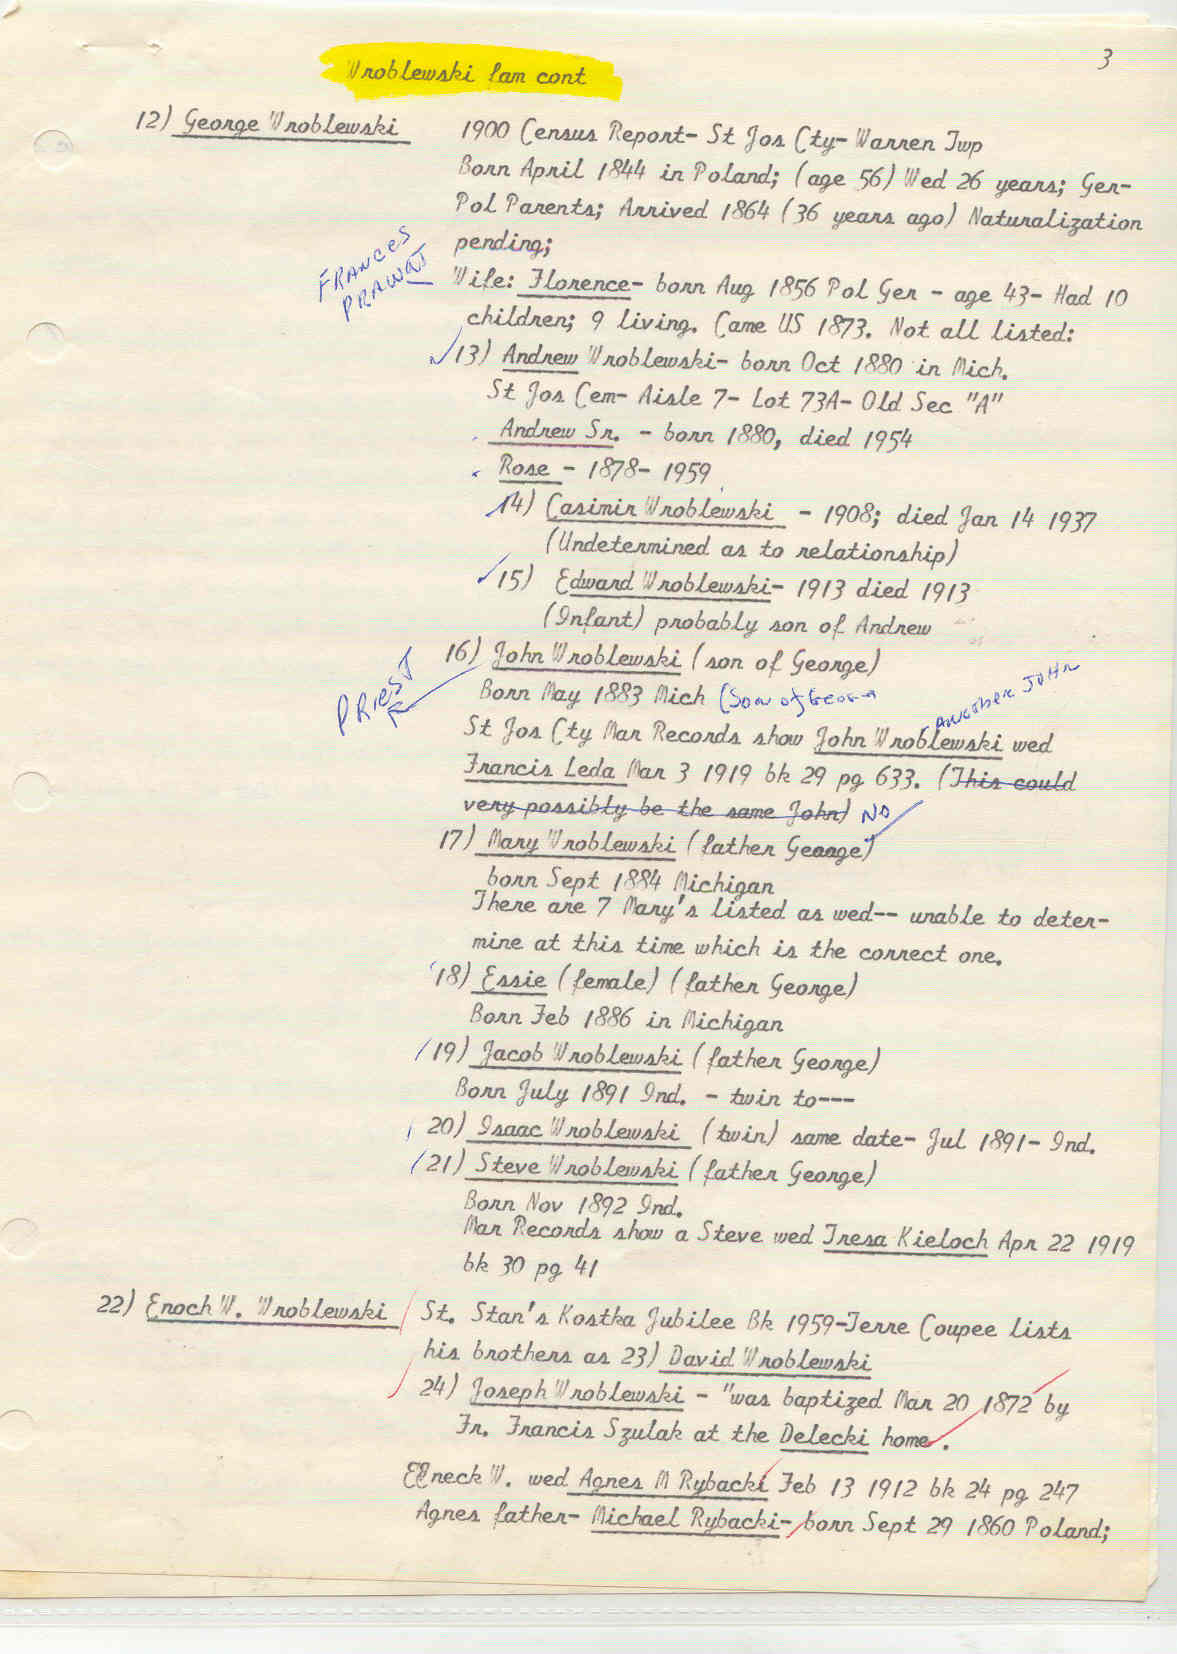 3
Wroblewski fam cont
12) George Wroblewski 1900 Census Report- St Jos Cty- Warren Twp
Born April 1844 in Poland; (age 56) Wed 26 years; Ger-
Pol Parents; Arrived 1864 (36 years ago) Naturalization
pending;
FRANCES
PRAWAT
Wife: Florence- born Aug 1856 Pol Ger - age 43- Had 10
children; 9 living. Came US 1873. Not all listed:
13) Andrew Wroblewski- born Oct 1880 in Mich.
St Jos Cem- Aisle 7- Lot 73A- Old Sec "A"
Andrew Sr. - born 1880, died 1954
Rose - 1878- 1959
14) Casimir Wroblewski - 1908; died Jan 14 1937
(Undetermined as to relationship)
15) Edward Wroblewski- 1913 died 1913
(Infant) probably son of Andrew
16) John Wroblewski (son of George)
PRIEST
Born May 1883 Mich (Son of George
ANOTHER JOHN
St Jos Cty Mar Records show John Wroblewski wed
Francis Leda Mar 3 1919 bk 29 pg 633. (This could
very possibly be the same John) NO
17) Mary Wroblewski (father George)
born Sept 1884 Michigan
There are 7 Mary's listed as wed-- unable to deter-
mine at this time which is the correct one.
18) Essie (female) (father George)
Born Feb 1886 in Michigan
19) Jacob Wroblewski (father George)
Born July 1891 Ind. - twin to---
20) Isaac Wroblewski (twin) same date- Jul 1891- Ind.
21) Steve Wroblewski (father George)
Born Nov 1892 Ind.
Mar Records show a Steve wed Tresa Kieloch Apr 22 1919
bk 30 pg 41
22) Enoch W. Wroblewski St. Stan's Kostka Jubilee Bk 1959-Terre Coupee lists
his brothers as 23) David Wroblewski
24) Joseph Wroblewski - "was baptized Mar 20 1872 by
Fr. Francis Szulak at the Delecki home.
Eneck W. wed Agnes M Rybacki Feb 13 1912 bk 24 pg 247
Agnes father- Michael Rybacki- born Sept 29 1860 Poland;